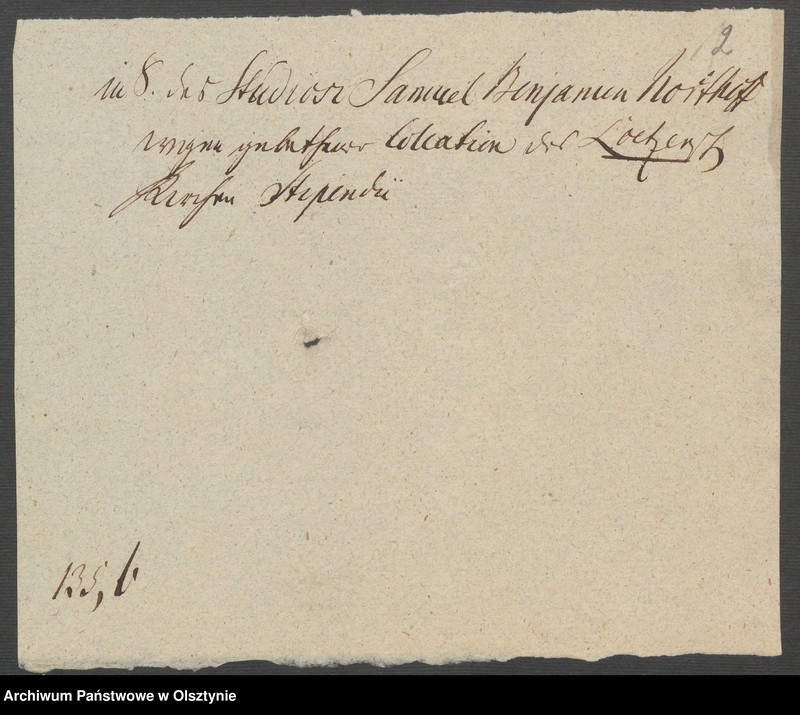 2
in S. des Studiosi Samuel Benjamin Northoff
wegen gebethener Collation des Loetzensch
Kirchen Stipendii
135, b
Archiwum Państwowe w Olsztynie